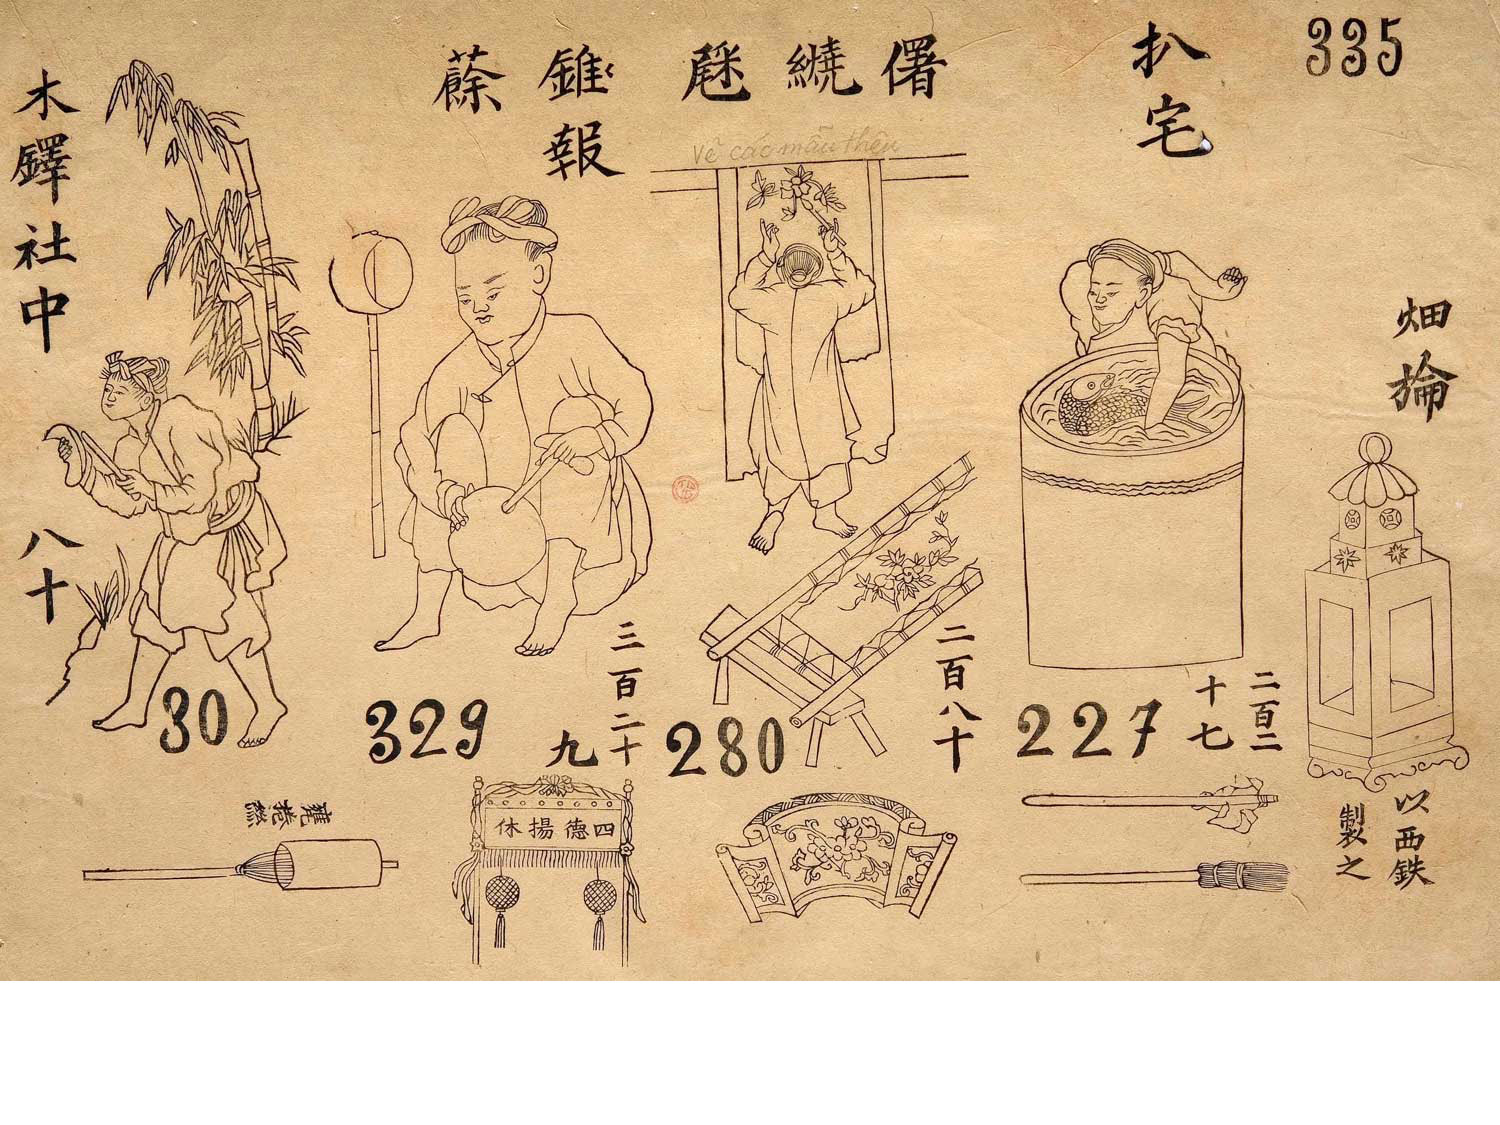 335
扒宅
畑掄
以西鉄
製之
二百二
十七
227
繞
Vẽ các mẫu thêu
二百八十
280
報
三百二十
九
329
木鐸社中
八十
30
四德揚休